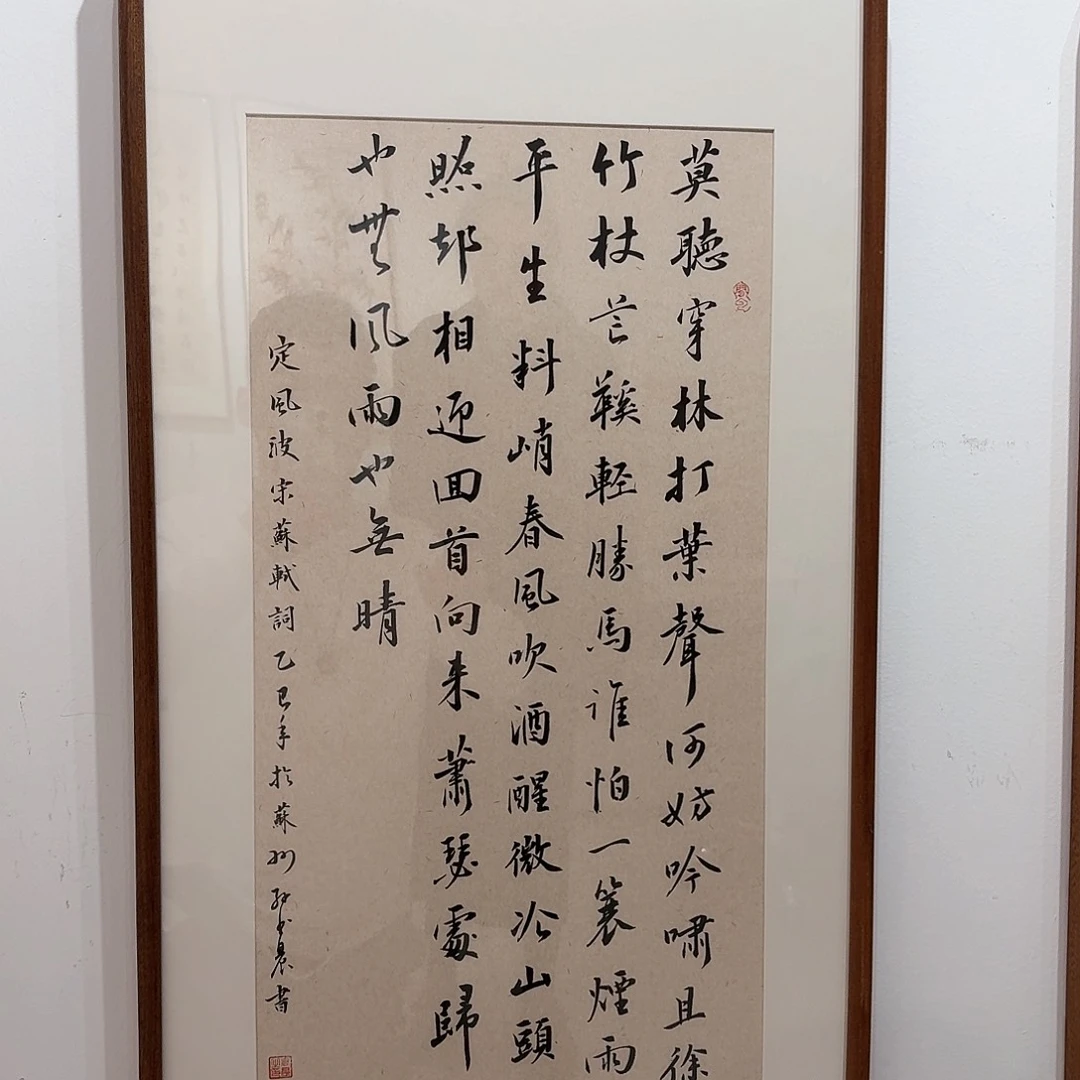 莫聽穿林打葉聲何妨吟嘯且徐
竹杖芒鞵輕勝馬誰怕一蓑煙雨
平生料峭春風吹酒醒微冷山頭
照却相迎回首向来蕭瑟處歸
也無風雨也無晴
定風波宋蘇軾詞乙巳年於蘇州孫少晨書